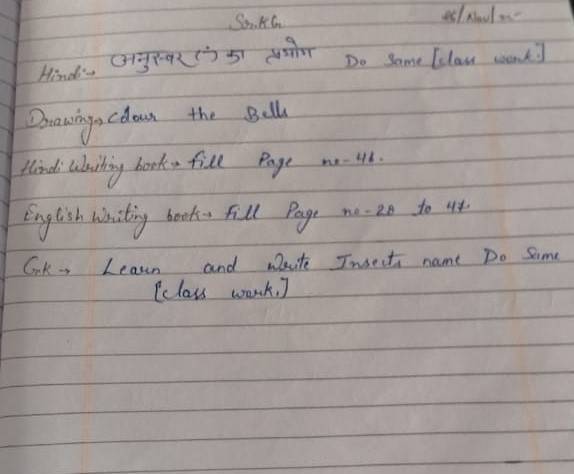 Sr.KG
/Nov/
Hindi:→ अनुस्वर (ं) का प्रयोग Do Same [class work.]
Drawing→ Colour the Bells
Hindi Writing book→ fill Page no-46.
English Writing book→ Fill Page no-28 to 47.
G.K → Learn and Write Insects name Do Same
[class work.]